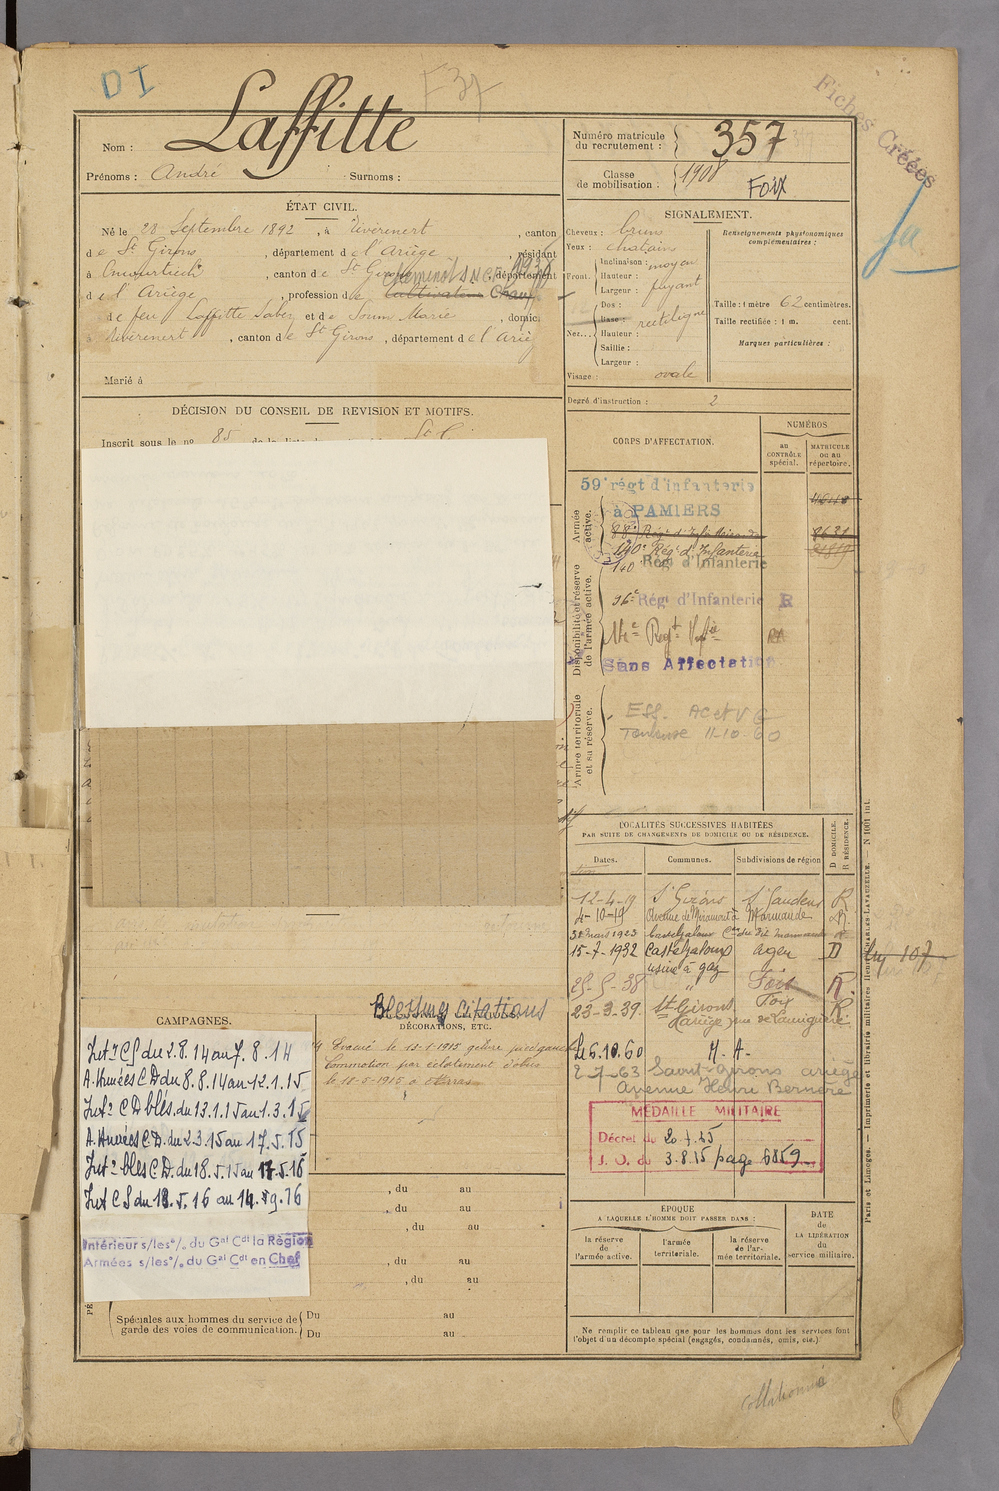 DI
F37
Fiches Créées
Nom : Laffitte
Prénoms : André Surnoms :
Numéro matricule du recrutement : 357
Classe de mobilisation : 1908 Foix
ÉTAT CIVIL.
Né le 28 Septembre 1892, à Rivèrenert, canton
de St Girons, département de l'Ariège, résidant
à , canton de St Girons, département
cheminots S.N.C.F. 1938
de l'Ariège, profession de cultivateur Chauf
de feu Laffitte et de Soum Marie, domic.
à Rivèrenert, canton de St Girons, département de l'Ariè
Marié à
SIGNALEMENT.
Cheveux : bruns
Yeux : chatains
Front. Inclinaison : moyen
Hauteur :
Largeur : fuyant
Nez... Dos :
Base : rectiligne
Hauteur :
Saillie :
Largeur :
Visage : ovale
Renseignements physionomiques complémentaires :
Taille : 1 mètre 62 centimètres.
Taille rectifiée : 1 m. cent.
Marques particulières :
Degré d'instruction : 2
DÉCISION DU CONSEIL DE REVISION ET MOTIFS.
Inscrit sous le no 85 de la liste
CORPS D'AFFECTATION.
NUMÉROS
au CONTRÔLE spécial.
MATRICULE OU AU répertoire.
Armée active.
59e régt d'infanterie
à PAMIERS
88e Rég. d'Infanterie
140e Rég. d'Infanterie
140 Régt d'Infanterie
Disponibilité et réserve de l'armée active.
96e Régt d'Infanterie R
Sans Affectation
Armée territoriale et sa réserve.
Eff. AC et VG
Toulouse 11-10-60
LOCALITÉS SUCCESSIVES HABITÉES
PAR SUITE DE CHANGEMENTS DE DOMICILE OU DE RÉSIDENCE.
Dates. Communes. Subdivisions de région
D DOMICILE. R RÉSIDENCE.
12-4-19 St Girons St Gaudens R
4-10-19 Avenue de Miramont à Marmande R
31 Mars 1923 Casteljaloux
15-7-1932 Casteljaloux Agen D
usine à gaz
25-5-38 " Foix R
23-3-39. St Girons Foix R.
Le 6.10.60 M. A.
2-7-63 Saint-Girons ariège
Avenue Henri Bernère
MÉDAILLE MILITAIRE
Décret du 20.7.25
J. O. du 3.8.25 page 6859
107
CAMPAGNES.
Intr CS du 2.8.14 au 7.8.14
A. Armées CD du 8.8.14 au 12.1.15
Intr CD bles. du 13.1.15 au 1.3.15
A. Armées CD. du 2.3.15 au 17.5.15
Intr bles CD. du 18.5.15 au 17.5.16
Int CS du 18.5.16 au 14.8.16
Intérieur s/les o/. du Gal Cdt la Région
Armées s/les o/. du Gal Cdt en Chef
Blessures Citations
DÉCORATIONS, ETC.
Evacué le 13-1-1915 gelure
Commotion par éclatement d'obus
le 18-5-1915 à Arras
, du au
, du au
, du au
, du au
, du au
Spéciales aux hommes du service de garde des voies de communication.
Du au
Du au
ÉPOQUE
A LAQUELLE L'HOMME DOIT PASSER DANS :
la réserve de l'armée active.
l'armée territoriale.
la réserve de l'armée territoriale.
DATE de LA LIBÉRATION du service militaire.
Ne remplir ce tableau que pour les hommes dont les services font
l'objet d'un décompte spécial (engagés, condamnés, omis, etc.)
Paris et Limoges. — Imprimerie et librairie militaires Henri CHARLES-LAVAUZELLE. — N 1001 int.
Collationné